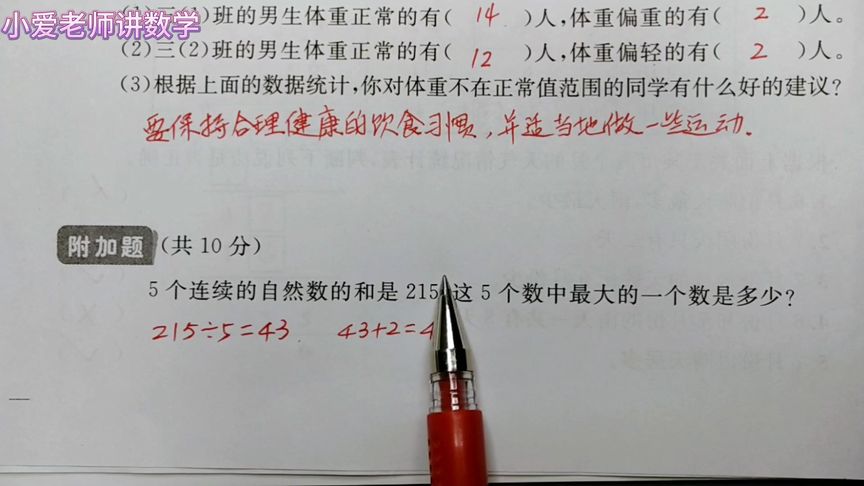 小爱老师讲数学
(2)班的男生体重正常的有( 14 )人,体重偏重的有( 2 )人。
(2)三(2)班的男生体重正常的有( 12 )人,体重偏轻的有( 2 )人。
(3)根据上面的数据统计,你对体重不在正常值范围的同学有什么好的建议?
要保持合理健康的饮食习惯,并适当地做一些运动.
附加题 (共 10 分)
5 个连续的自然数的和是 215 这 5 个数中最大的一个数是多少?
215÷5=43 43+2=4